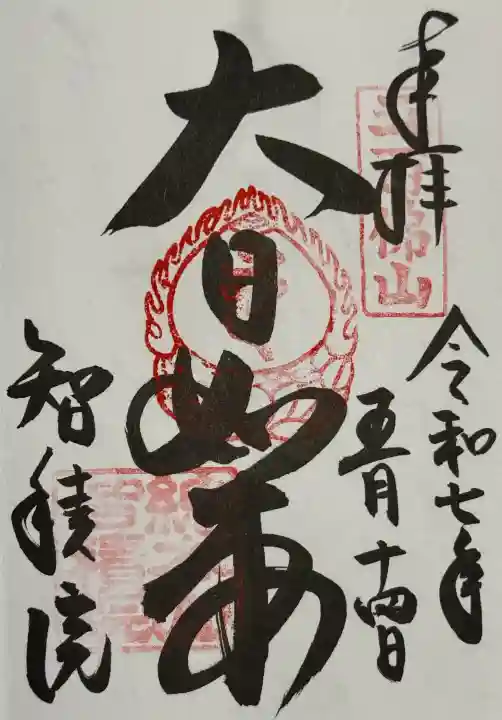 奉拝
令和七年
五月十四日
大日如来
智積院